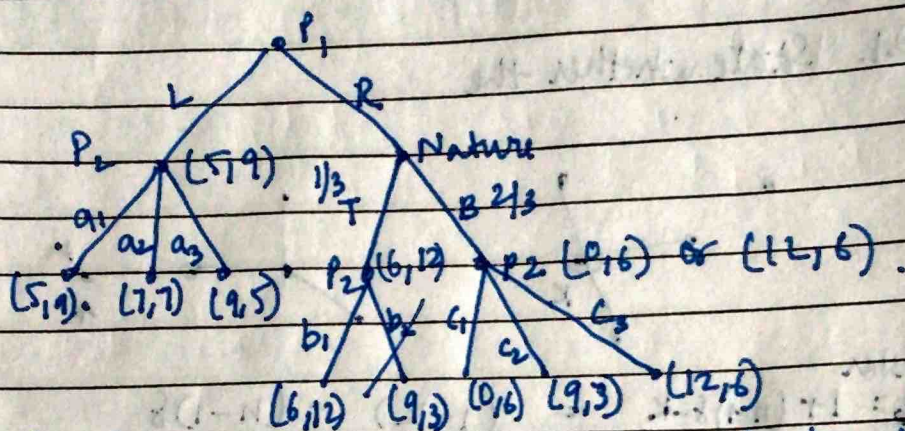 P1
L R
P2 (5,9) Nature
1/3 T B 2/3
a1 a2 a3 P2 (6,12) P2 (0,6) or (12,6).
(5,9). (7,7) (9,5)
b1 b2 c1 c2 c3
(6,12) (9,3) (0,6) (9,3) (12,6)